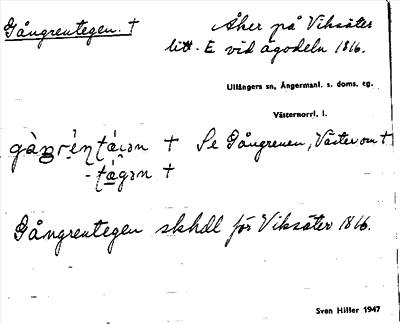 Gångrentegen. †
Åker på Viksäter
litt. E vid ägodeln 1816.
Ullångers sn, Ångermanl. s. doms. tg.
Västernorrl. l.
† Se Gångrenen, Väster om †
†
Gångrentegen skhdl för Viksäter 1816.
Sven Hiller 1947